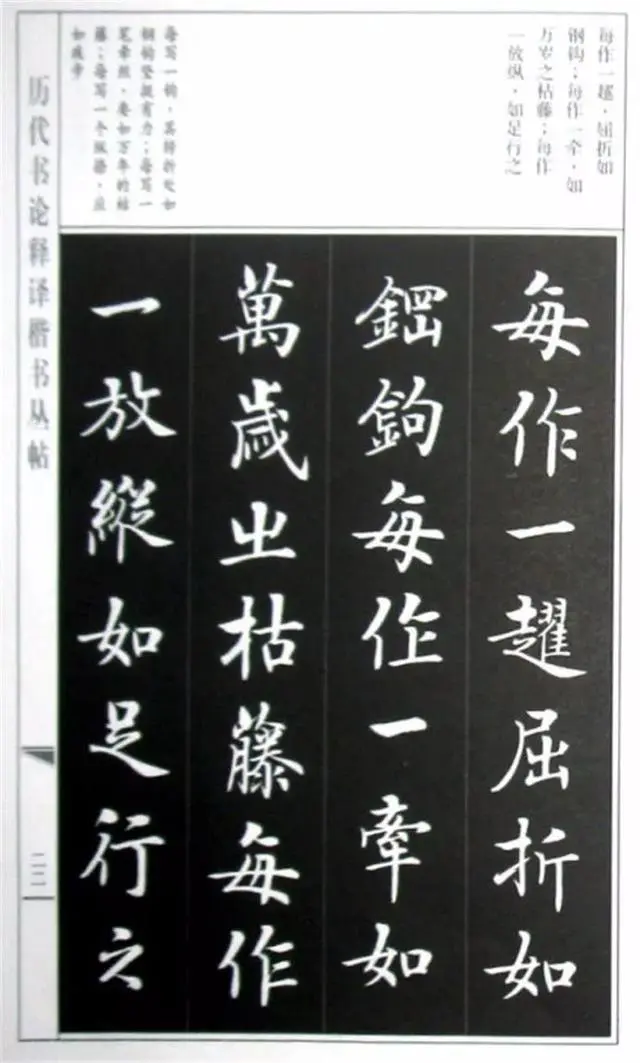 每作一趯，屈折如
钢钩；每作一牵，如
万岁之枯藤；每作
一放纵，如足行之
每写一钩，其转折处如
钢钩坚挺有力；每写一
笔牵丝，要如万年的枯
藤；每写一个纵捺，应
每作一趯屈折如
鋼鉤每作一牽如
萬歲之枯藤每作
一放縱如足行之
历代书论释译楷书丛帖
二二